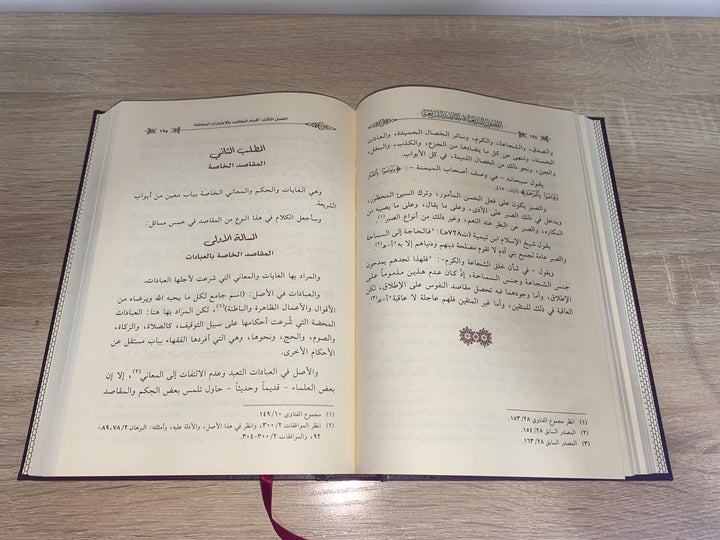 ١٩٤
والصدق، والشجاعة، والكرم، وسائر الخصال الحميدة، والعبادات
الحسنة، وتنهى عن كل ما يضادها من الجزع، والكذب، والبخل،
والجبن، ونحو ذلك من الخصال القميئة، في كل الأبواب.
يقول سبحانه - في وصف أصحاب الميمنة -: ﴿وَتَوَاصَوْا بِالصَّبْرِ
وَتَوَاصَوْا بِالْمَرْحَمَةِ﴾ [البلد: ١٧].
والصبر يكون على فعل الحسن المأمور، وترك السيئ المحظور،
ويدخل في ذلك الصبر على الأذى، وعلى ما يقال، وعلى ما يصيبه من
المكاره، والصبر عن البطر عند النعم، وغير ذلك من أنواع الصبر(١).
يقول شيخ الإسلام ابن تيمية (ت٧٢٨هـ): "فالحاجة إلى السماحة
والصبر عامة لجميع بني آدم لا تقوم مصلحة دينهم ودنياهم إلا به"أ-هـ(٢).
ويقول - في شأن خلق الشجاعة والكرم-: "فلهذا تجدهم يمدحون
جنس الشجاعة وجنس السماحة، إذ كان عدم هذين مذموماً على
الإطلاق، وأما وجودهما فبه تحصل مقاصد النفوس على الإطلاق، لكن
العاقبة في ذلك للمتقين، وأما غير المتقين فلهم عاجلة لا عاقبة"أ-هـ(٣).
(١) انظر مجموع الفتاوى ١٥٣/٢٨.
(٢) المصدر السابق ١٥٤/٢٨.
(٣) المصدر السابق ١٦٣/٢٨.
الفصل الثالث: أقسام المقاصد بالاعتبارات المختلفة
١٩٥
المطلب الثاني
المقاصد الخاصة
وهي الغايات والحكم والمعاني الخاصة بباب معين من أبواب
الشريعة.
وسأجعل الكلام في هذا النوع من المقاصد في خمس مسائل:
المسألة الأولى
المقاصد الخاصة بالعبادات
والمراد بها الغايات والمعاني التي شرعت لأجلها العبادات.
والعبادات في الأصل: (اسم جامع لكل ما يحبه الله ويرضاه من
الأقوال والأعمال الظاهرة والباطنة)(١)، لكن المراد بها هنا: العبادات
المحضة التي شُرعت أحكامها على سبيل التوقيف، كالصلاة، والزكاة،
والصوم، والحج، ونحوها، وهي التي أفردها الفقهاء بباب مستقل عن
الأحكام الأخرى.
والأصل في العبادات التعبد وعدم الالتفات إلى المعاني(٢)، إلا إن
بعض العلماء - قديماً وحديثاً - حاول تلمس بعض الحِكم والمقاصد
(١) مجموع الفتاوى ١٤٩/١٠.
(٢) انظر الموافقات ٣٠٠/٢، وانظر في هذا الأصل، والأدلة عليه، وأمثلته: البرهان ٧٨/٢، ٨٩-
٩٢، والموافقات ٣٠٠/٢-٣٠٤.